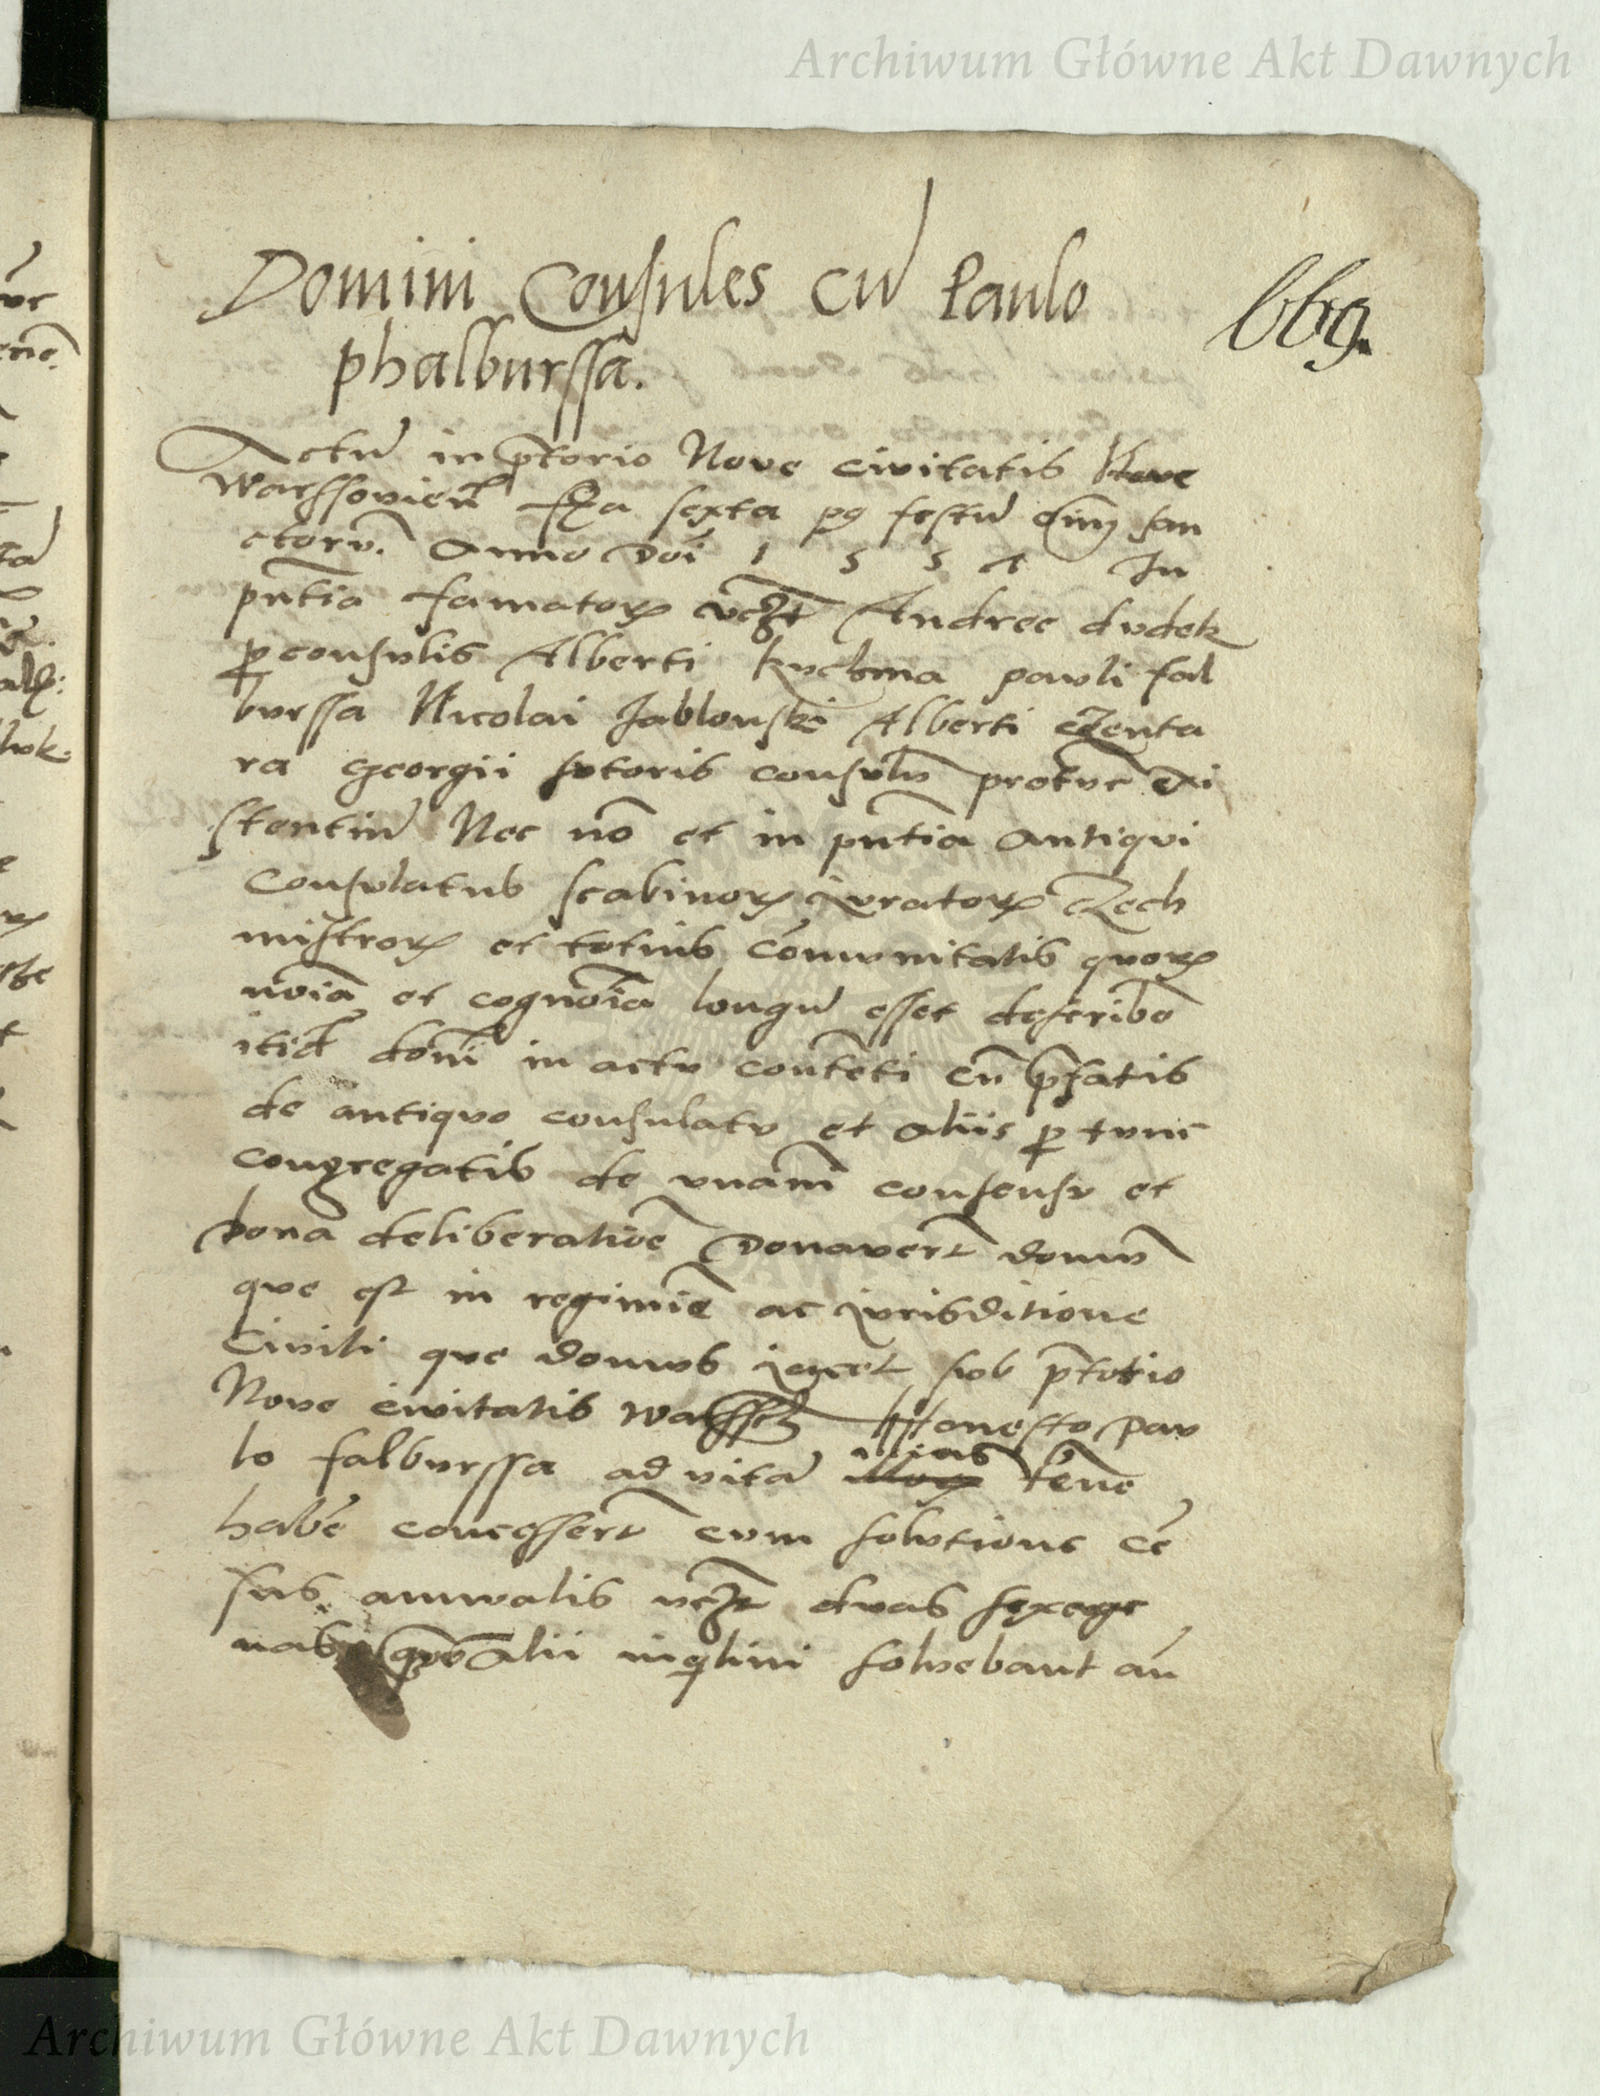 Archiwum Główne Akt Dawnych
Domini Consules cu Paulo
phalburssa.
Actu in ptorio Nove civitatis Nove
Warssovien fra sexta po festu oim san
ctoru. Anno Doi 1 5 5 4 In
pntia famator vczt Andree dudek
pconsulis Alberti kuchma pauli fal
burssa Nicolai Jablonski Alberti czenta
ra Georgii sutoris consulu protuc exi
stentiu Nec no et in pntia antiqui
Consulatus scabinor iurator czech
mistror et totius comunitatis quor
noia et cognoia longu esset describe
itid doni in actu conteti cu pfatis
de antiquo consulatu et aliis p tunc
congregatis de unami consensu et
bona deliberatioe Donavert domu
que est in regimie ac iurisditione
Civili que domus iacet sub ptorio
Nove civitatis Honesto Pau
lo falburssa ad vita alias tene
habe concessert cum solutione ce
sus annualis vczt duas sexage
nas alii inqlini solvebant an
Archiwum Główne Akt Dawnych